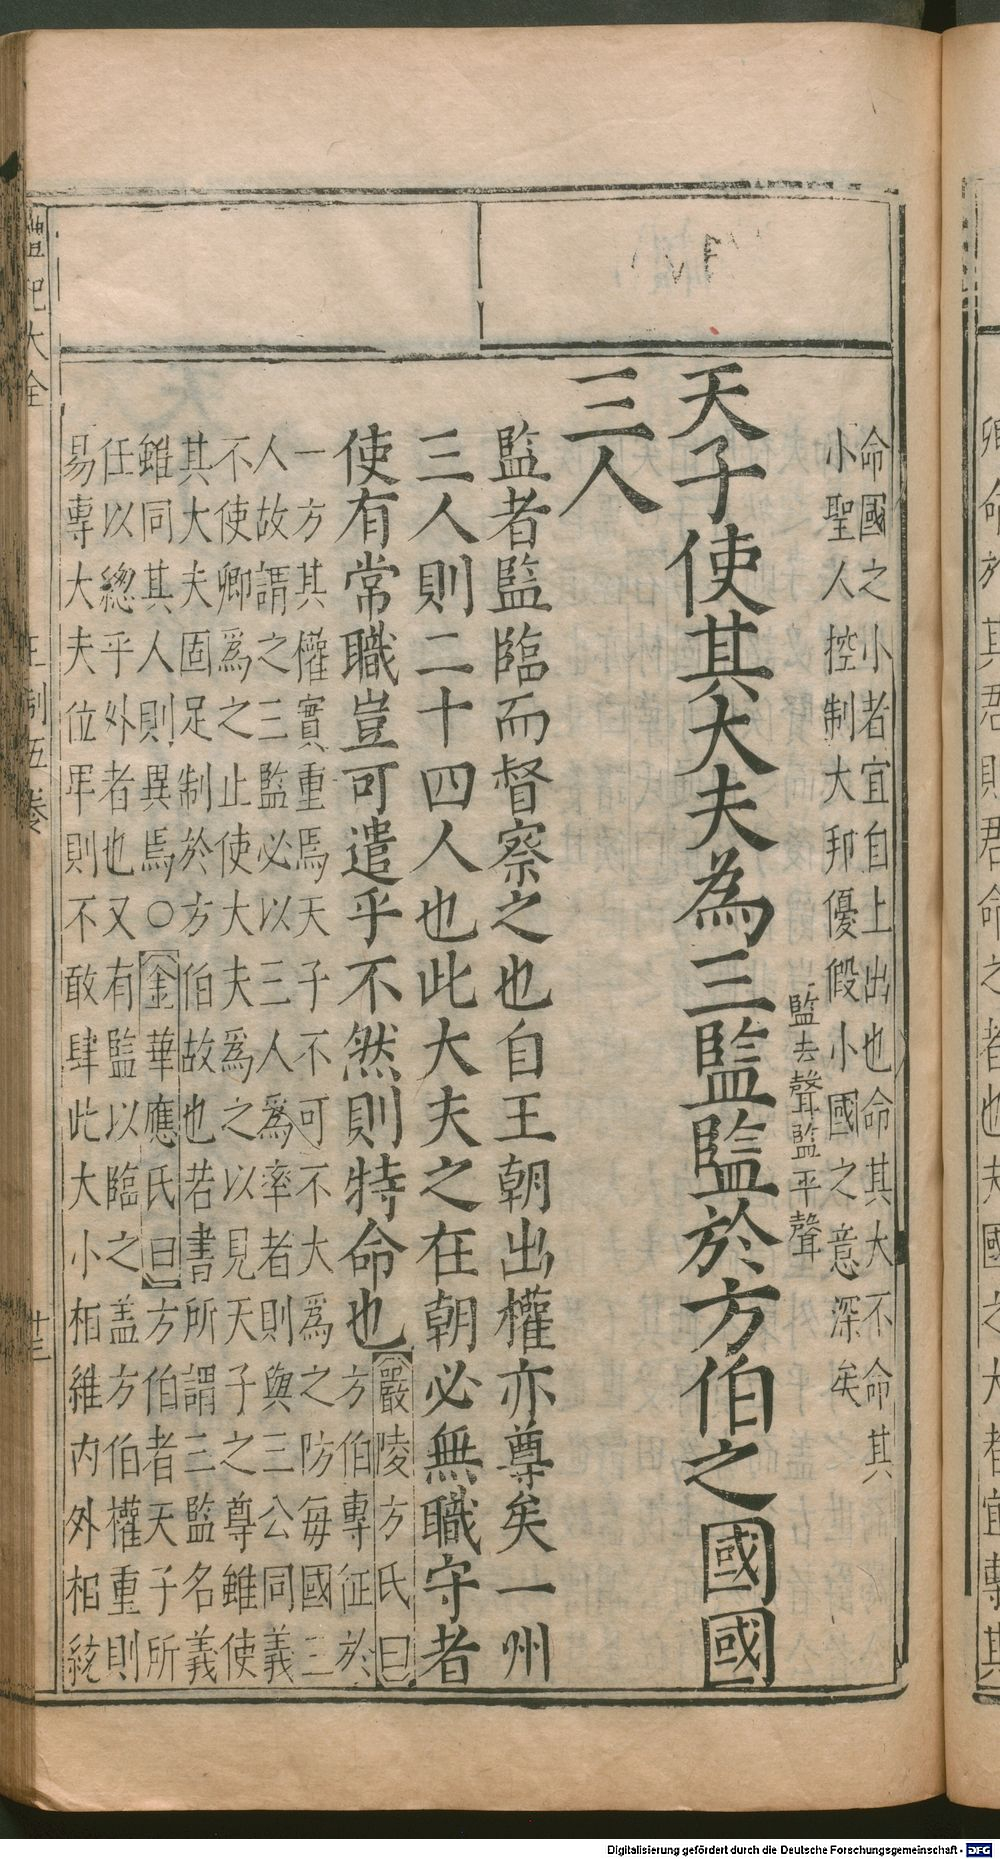 命國之小者宜自上出也命其大不命其
小聖人控制大邦優假小國之意深矣
天子使其大夫為三監監於方伯之國國
監去聲監平聲
三人
監者監臨而督察之也自王朝出權亦尊矣一州
三人則二十四人也此大夫之在朝必無職守者
使有常職豈可遣乎不然則特命也
嚴陵方氏曰
方伯專征於
一方其權實重焉天子不可不大爲之防每國三
人故謂之三監必以三人爲率者則與三公同義
不使卿爲之止使大夫爲之以見天子之尊雖使
其大夫固足制於方伯故也若書所謂三監名義
雖同其人則異焉○金華應氏曰方伯者天子所
任以總乎外者也又有監以臨之盖方伯權重則
易專大夫位卑則不敢肆此大小相維內外相統
禮記大全
王制五卷
廿三
卿命於其君則君命之者也夫國之大者宜專其
Digitalisierung gefördert durch die Deutsche Forschungsgemeinschaft - DFG